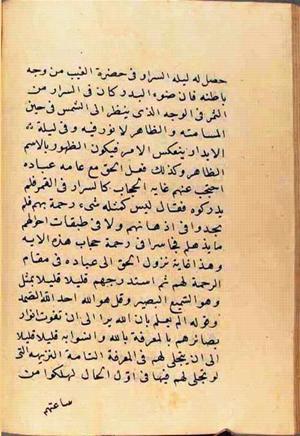 حصل له ليلة السرار فى حضرة الغيب من وجه
باطنه فان ضوء البدر كان فى السرار من
القمر فى الوجه الذى ينظر الى الشمس فى حين
المسامته والظاهر لا نور فيه وفى ليلة
الابدار ينعكس الامر فيكون الظهور بالاسم
الظاهر وكذلك فعل الحق مع عامة عباده
احتجب عنهم غاية الحجاب كالسرار فى القمر فلم
يدركوه فقال ليس كمثله شىء رحمة بهم فلم
يجدوا فى اذهانهم ولا فى طبقات احوالهم
ما يذهلهم فى رحمة حجاب هذه الاية
وهذا غاية نزول الحق الى عباده فى مقام
الرحمة لهم ثم استدرجهم قليلا قليلا بمثل
وهو السميع البصير وقل هو الله احد الله الصمد
وقوله الم يعلم بان الله يرى الى ان تقوت انوار
بصائرهم بالمعرفة بالله وانسوا به قليلا قليلا
الى ان يتجلى لهم فى المعرفة التامة النزيهة التى
لو تجلى لهم فيها فى اول الحال لهلكوا من
ساعتهم